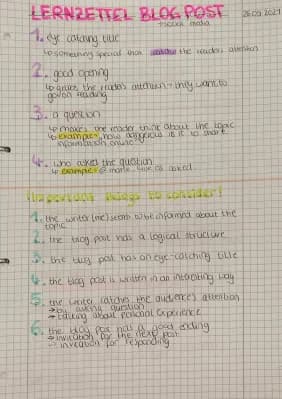 LERNZETTEL BLOG POST 25.09.2021
social media
1. eye catching title
↳ something special that the readers attention
2. good opening
↳ grabs the readers attention → they want to
go on reading
3. a question
↳ makes the reader think about the topic
↳ example: how dangerous is it to share
information online
4. who asked the question
↳ example: @marie has asked
Important things to consider!
1. the writer (me) seems to be informed about the
topic
2. the blog post has a logical structure
3. the blog post has an eye-catching title
4. the blog post is written in an interesting way
5. the writer catches the audience's attention
→ by asking question
→ talking about personal experience
6. the blog post has a good ending
→ invitation for the next post
→ invitation for responding